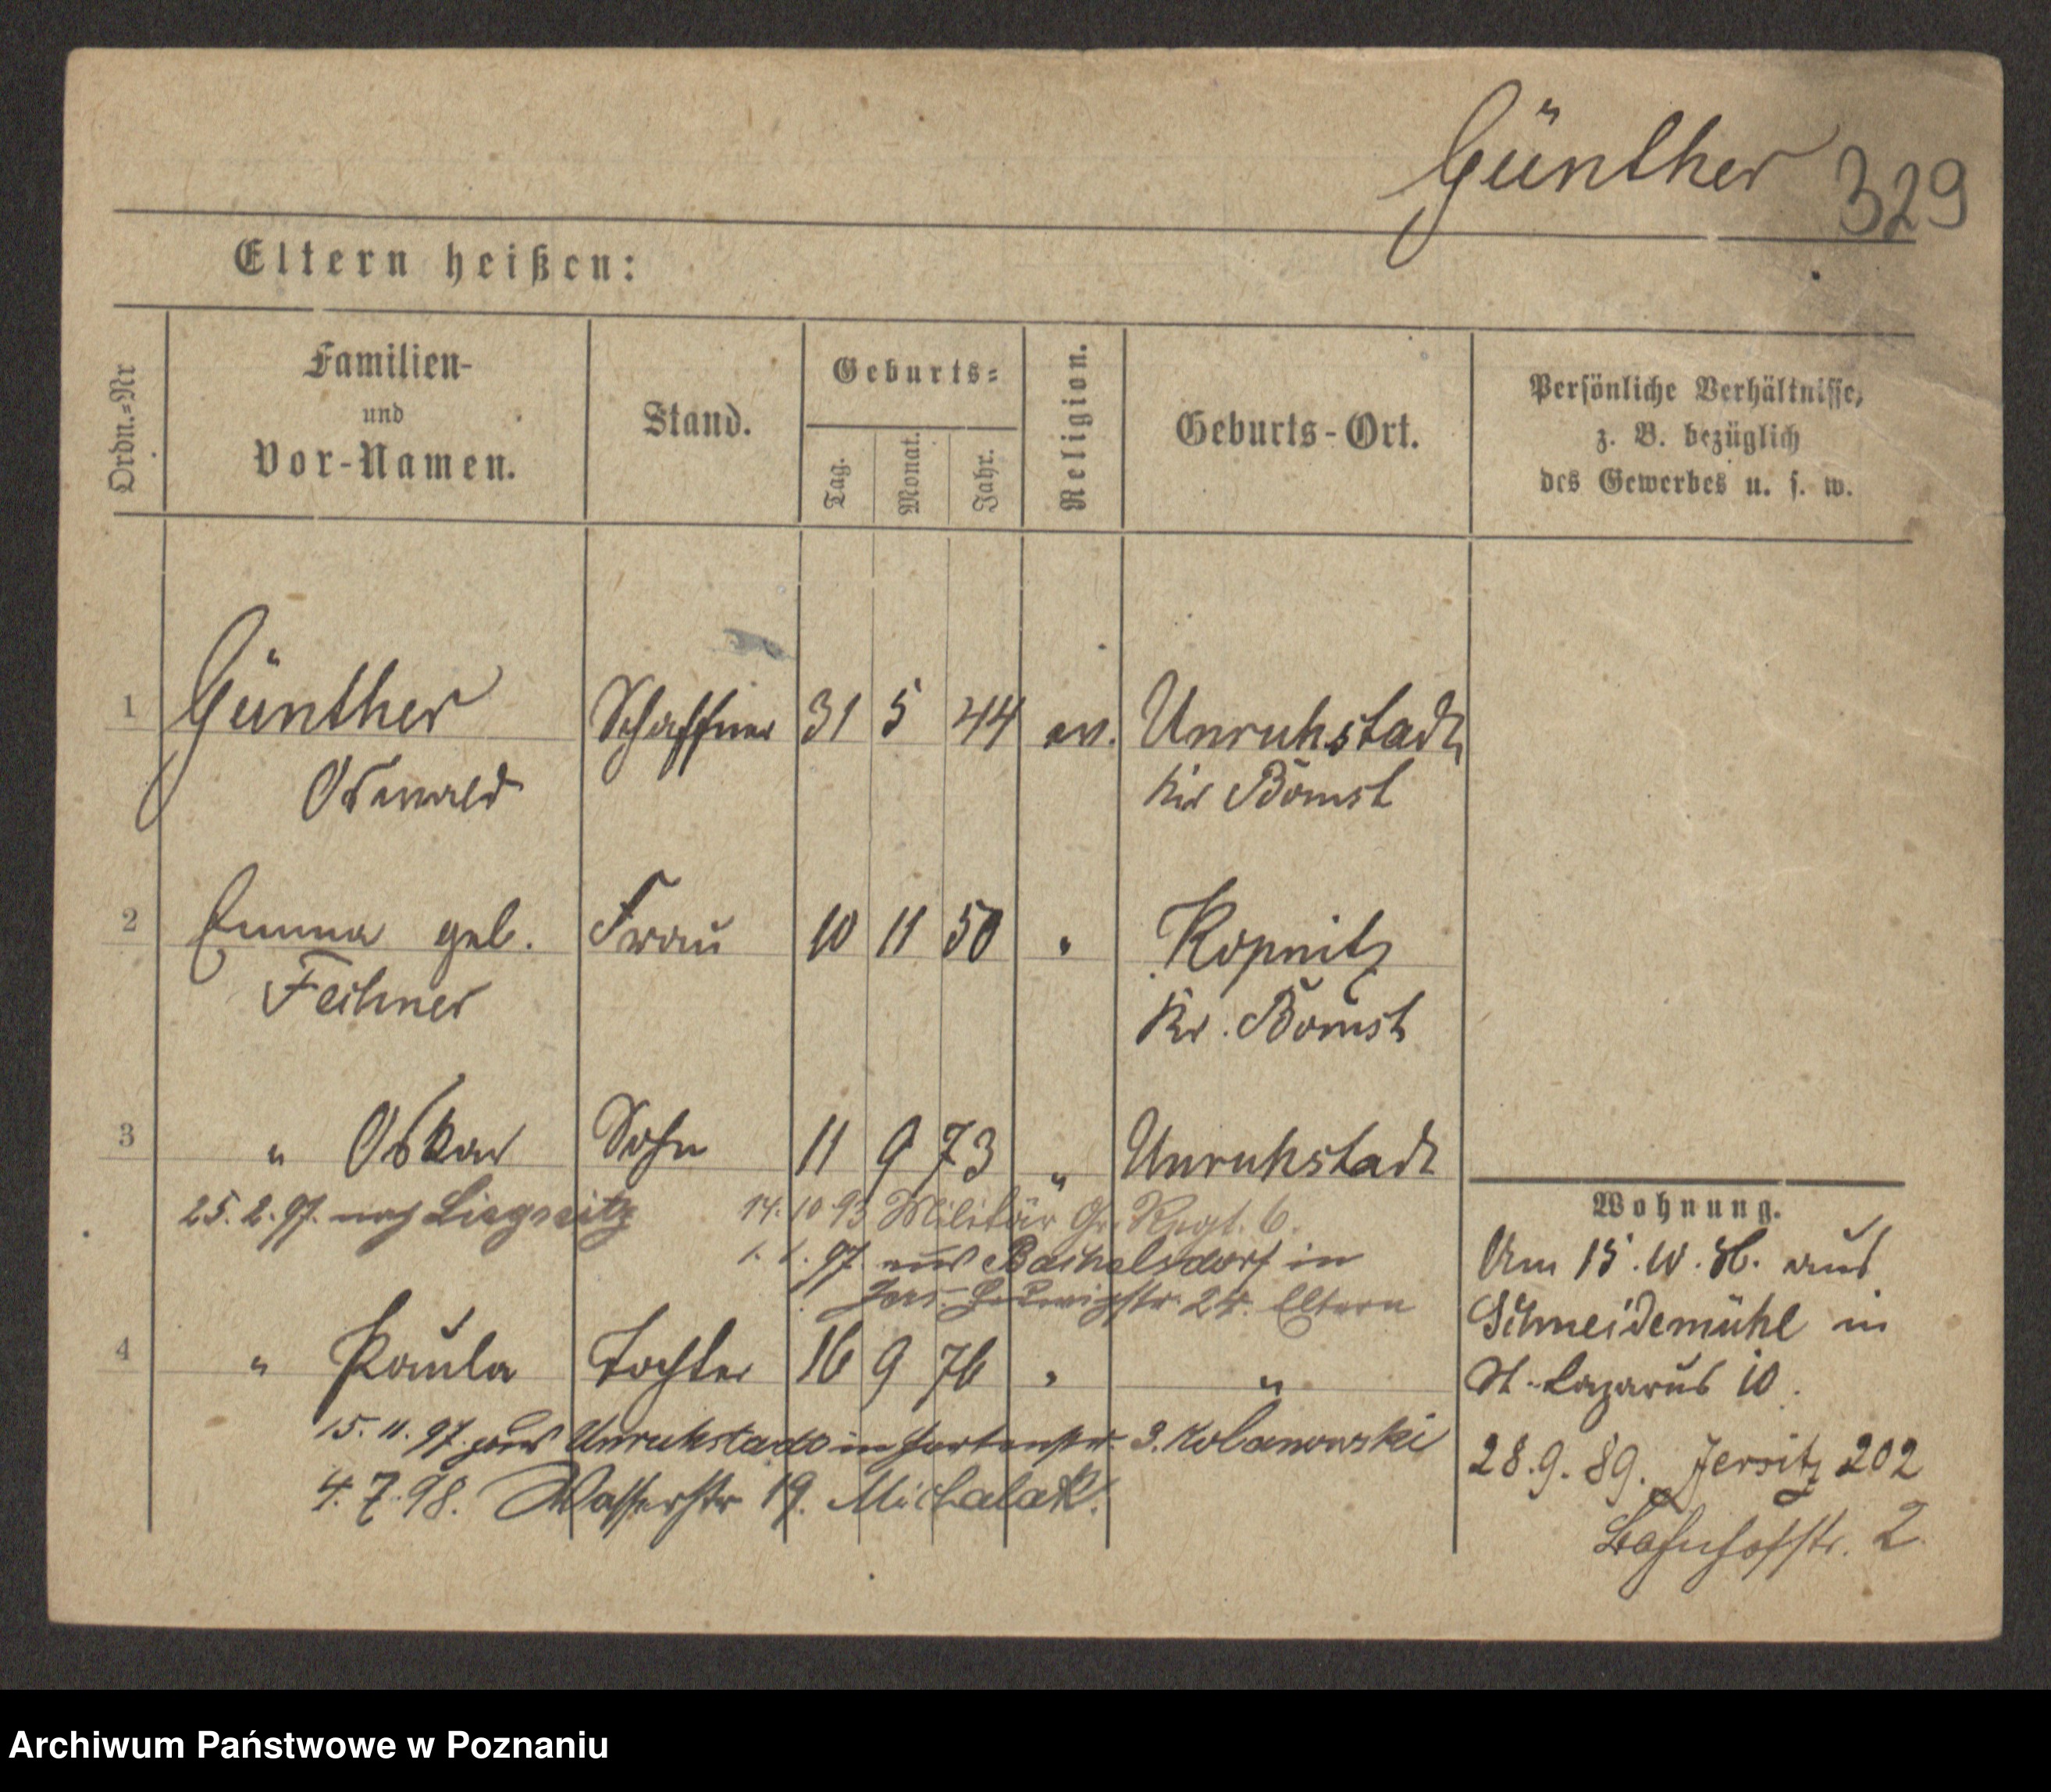 Günther 329
Eltern heißen:
Ordn.-Nr
Familien-
und
Vor-Namen.
Stand.
Geburts-
Tag.
Monat.
Jahr.
Religion.
Geburts-Ort.
Persönliche Verhältnisse,
z. B. bezüglich
des Gewerbes u. s. w.
1 Günther Schaffner 31 5 44 ev. Unruhstadt
Oswald Kr Bomst
2 Emma geb. Frau 10 11 50 " Kopnitz
Fechner Kr. Bomst
3 " Oskar Sohn 11 9 73 " Unruhstadt
25. 2. 97. nach Liegnitz
14. 10 93 Militär Gr. Regt. 6.
97 aus in
24. Eltern
4 " Paula Tochter 16 9 76 " "
15. 11. 97. aus Unruhstadt in Gartenstr. 3. Kolanowski
4. 7. 98. Wasserstr 19. Michalak.
Wohnung.
Am 15. aus
Schneidemühl in
St. Lazarus 10.
28. 9. 89. Jersitz 202
Bahnhofstr. 2
Archiwum Państwowe w Poznaniu